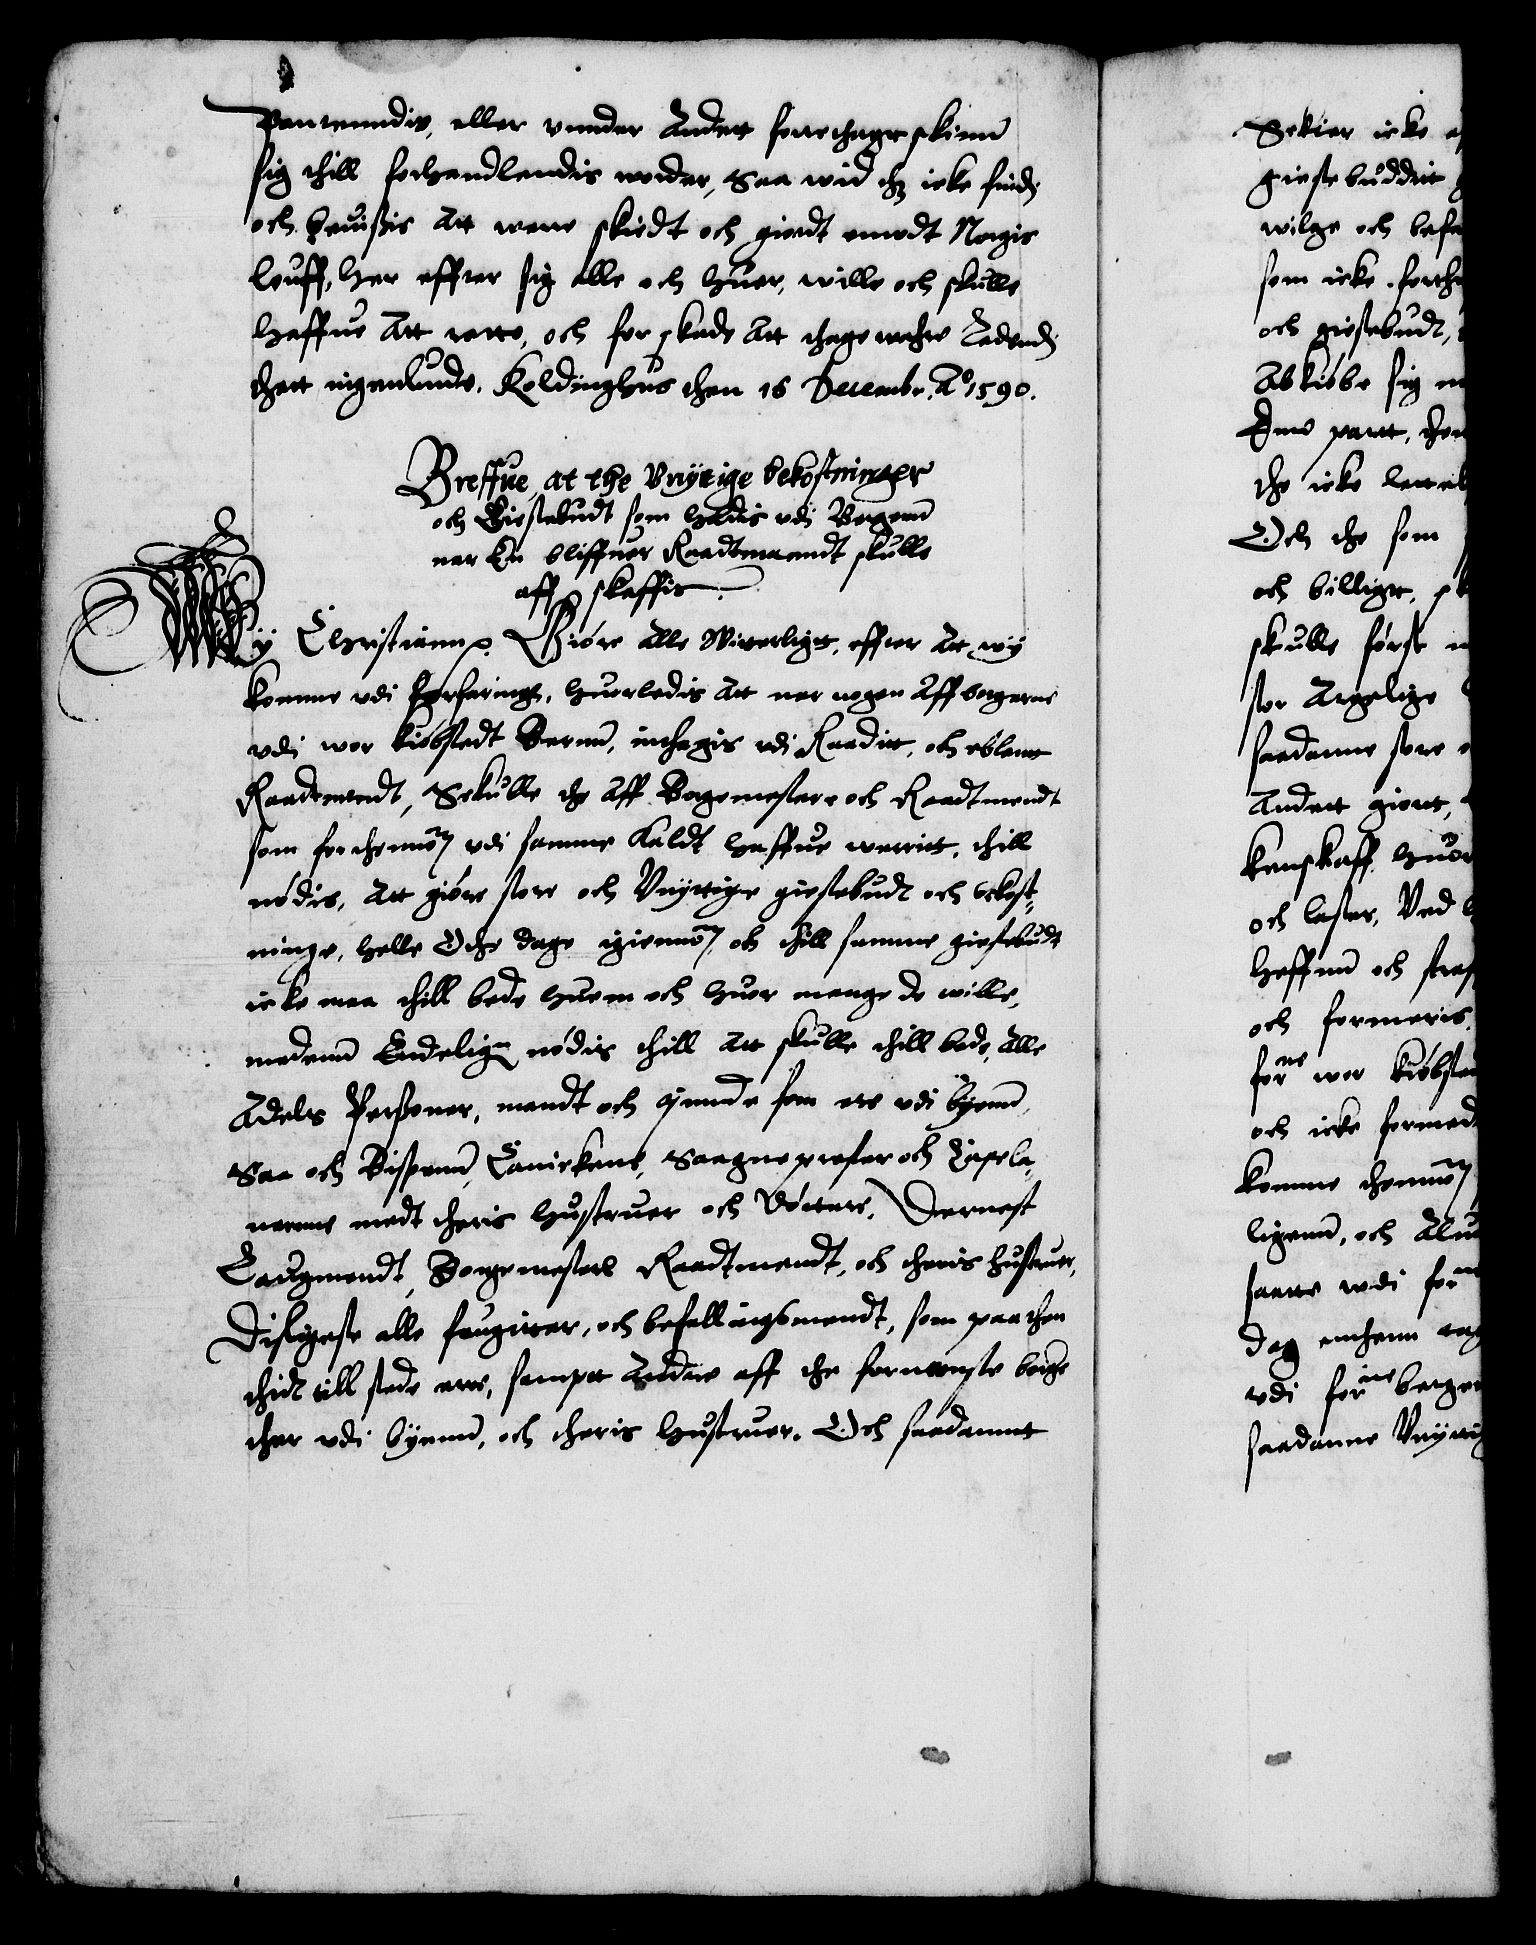 eller vnnder Andett forre thage skiinn
sig thill forhandlendis worder, Saa wid thz icke findis
och beuißis Att were skiedt och giordt emodt Norgis
Louff, Her effter sig alle och huer, wille och skulle
haffue Att rette, och for skade Att thage wahre Ladendis
thett ingenlunde. Koldinghus then 16 Decembr. Aº 1590.
Breffue, at the Vnyttige bekostninger
och Giestebudt som holdis vdi Bergenn
nar En bliffuer Raadtmandt skulle
aff skaffis.
Wij Christiann p. Giöre Alle Witterligt, effter At wij
komme vdi forfaringe, huorledis Att nar nogen Aff borgerne
vdi wor kiöbstedt Berenn, inthagis vdi Raaditt, och bliue
Raadtmendt, Skulle the Aff Borgemestere och Raadtmendt
som for thennom vdi samme kaldt haffue werrit, thill
nödis, Att giöre store och Vnyttige giestebudt och bekost-
ninge, helle Otte dage igiennom, och thill samme giestebudt
icke maa thill bede huem och huor mange de wille,
medenn Endeligen nödis thill Att skulle thill bede, Alle
Adels Personer, mendt och quinde som ere vdi byenn,
Saa och Bispenn, Canickene, Saagneprester och Capela-
nerne medt theris hustruer och Döttere, Dernest
Laugmendt, Borgemestere Raadtmendt, och theris hustruer,
Disligeste alle fougitter, och befallingsmendt, som paa then
thidt till stede ere, sampt Andre aff the fornemste borge
ther vdi byenn, och theris hustruer. Och saadannt
Sckier icke
giestebuddit
wilge och
som icke
och giestebudt,
Abkiöbe sig
partt,
the icke
Och the som
och billigt,
skulle först
stor Argelige
saadanne store
Andett giortt,
kenskaff, huor
och laster, Ved
Haffuer och
och formeris
forne wor kiöbsted
och icke
komme thennom
ligenn, och
saette wdi forne
dag
vdi forne bergen
saadanne Vnyttig